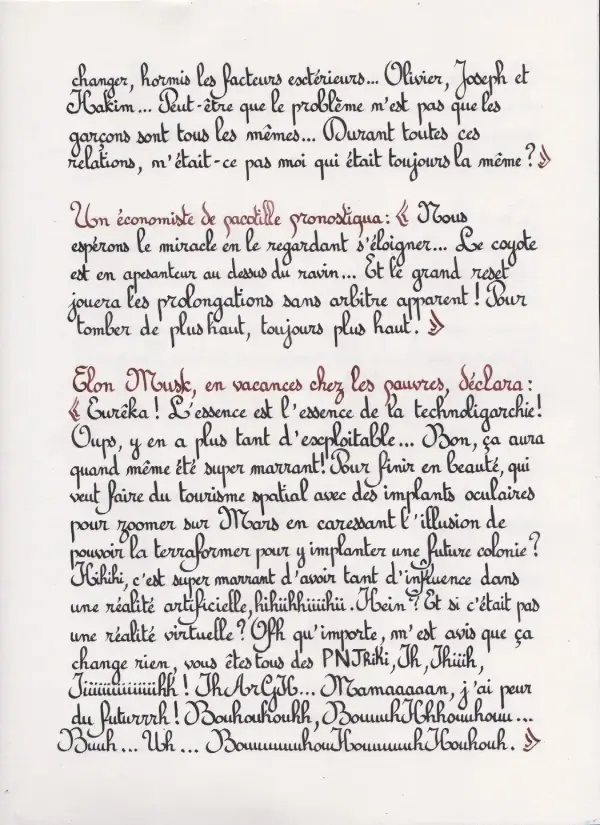 changer, hormis les facteurs extérieurs... Olivier, Joseph et
Hakim... Peut-être que le problème n'est pas que les
garçons sont tous les mêmes... Durant toutes ces
relations, n'était-ce pas moi qui était toujours la même ? »
Un économiste de pacotille pronostiqua : « Nous
espérons le miracle en le regardant s'éloigner... Le coyote
est en apesanteur au dessus du ravin... Et le grand reset
jouera les prolongations sans arbitre apparent ! Pour
tomber de plus haut, toujours plus haut. »
Elon Musk, en vacances chez les pauvres, déclara :
« Eurêka ! L'essence est l'essence de la technoligarchie !
Oups, y en a plus tant d'exploitable... Bon, ça aura
quand même été super marrant ! Pour finir en beauté, qui
veut faire du tourisme spatial avec des implants oculaires
pour zoomer sur Mars en caressant l'illusion de
pouvoir la terraformer pour y implanter une future colonie ?
Hihihi, c'est super marrant d'avoir tant d'influence dans
une réalité artificielle, hihiihhiiiihii. Hein ? Et si c'était pas
une réalité virtuelle ? Ofh qu'importe, m'est avis que ça
change rien, vous êtes tous des PNJhihi, Ih, Ihiiih,
Iiiiiiiiiiiiiihh ! IhArGH... Mamaaaaan, j'ai peur
du futurrrh ! Bouhouhouhh, BouuuhHhhouuhouu...
Buuh... Uh... BouuuuuuhouHouuuuuhHouhouh. »